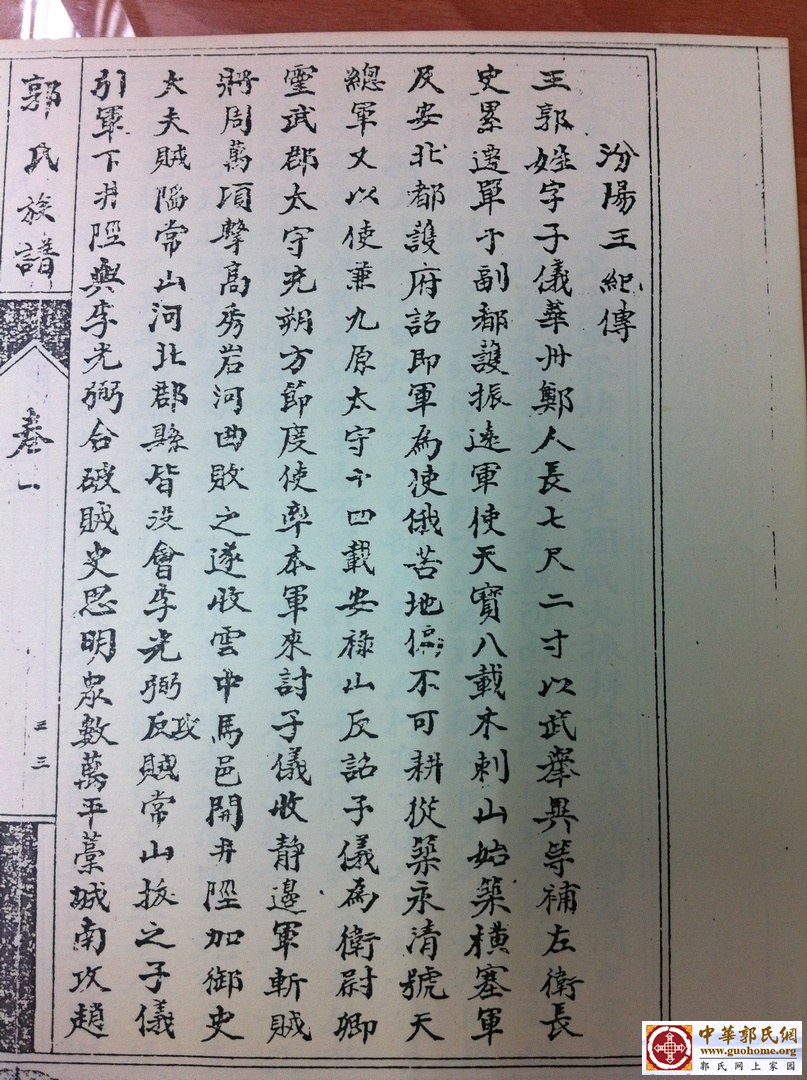 汾陽王紀傳
王郭姓字子儀華州鄭人長七尺二寸以武舉異等補左衛長
史累遷單于副都護振遠軍使天寶八載木剌山始築橫塞軍
及安北都護府詔即軍為使俄苦地偏不可耕徙築永清號天
總軍又以使兼九原太守十四載安祿山反詔子儀為衛尉卿
靈武郡太守充朔方節度使率本軍來討子儀收静邊軍斬賊
將周萬項擊高秀岩河曲敗之遂收雲中馬邑開井陘加御史
大夫賊陷常山河北郡縣皆没會李光弼反賊常山拔之子儀
攻
引軍下井陘與李光弼合破賊史思明眾數萬平藁城南攻趙
郭氏族譜
卷一
三三
中華郭氏網
www.guohome.org
郭氏網上家園